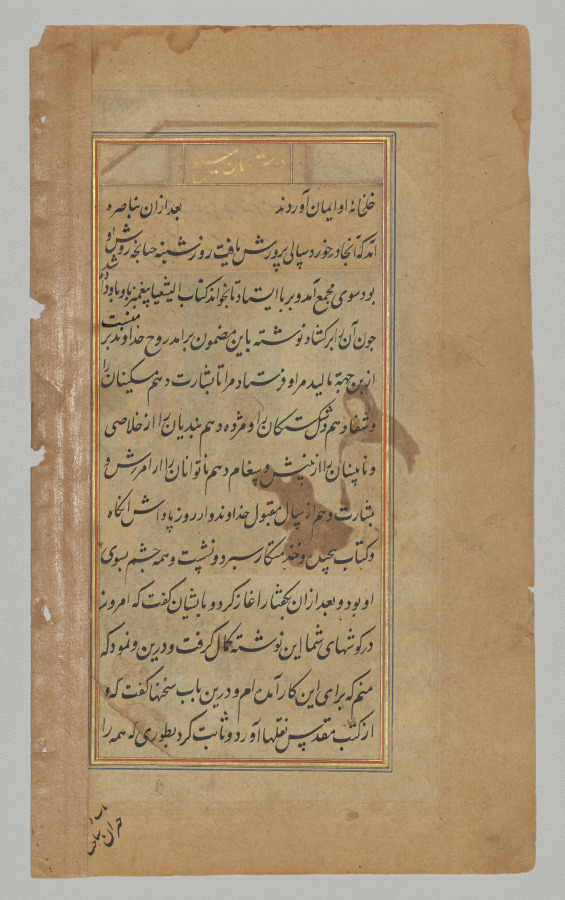 داستان مسیح
خلخانه او ایمان آوردند بعد ازان بناصره
آمد که آنجا در خورد سالی پرورش یافت روز شنبه چنانچه روش او
بود سوی مجمع آمد و بر پا ایستاد تا بخواند کتاب الیشعیا پیغمبر باو دادند
چون آن را بر کشاد نوشته باین مضمون برآمد روح خداوند بر منست
ازین جهة مالید مرا و فرستاد مرا تا بشارت دهم مسکینان را
و شفا دهم دل شکستکان را و مژده دهم بندیان را از خلاصی
و نابینان را از بینش و پیغام دهم ناتوانان را از آمرزش و
بشارت دهم از سال مقبول خداوند و از روز پاداش انکاه
و کتاب پیچید و خدمتکار سپرد و نشست و همه چشم بسوی
او بود و بعد ازان بکفتار اغاز کرد و بایشان کفت که امروز
در کوشهای شما این نوشته کمال کرفت و درین و نمود که
منم که برای این کار آمده ام و درین باب سخنها کفت که و
از کتب مقدس نقلها آورد و ثابت کرد بطوری که همه را